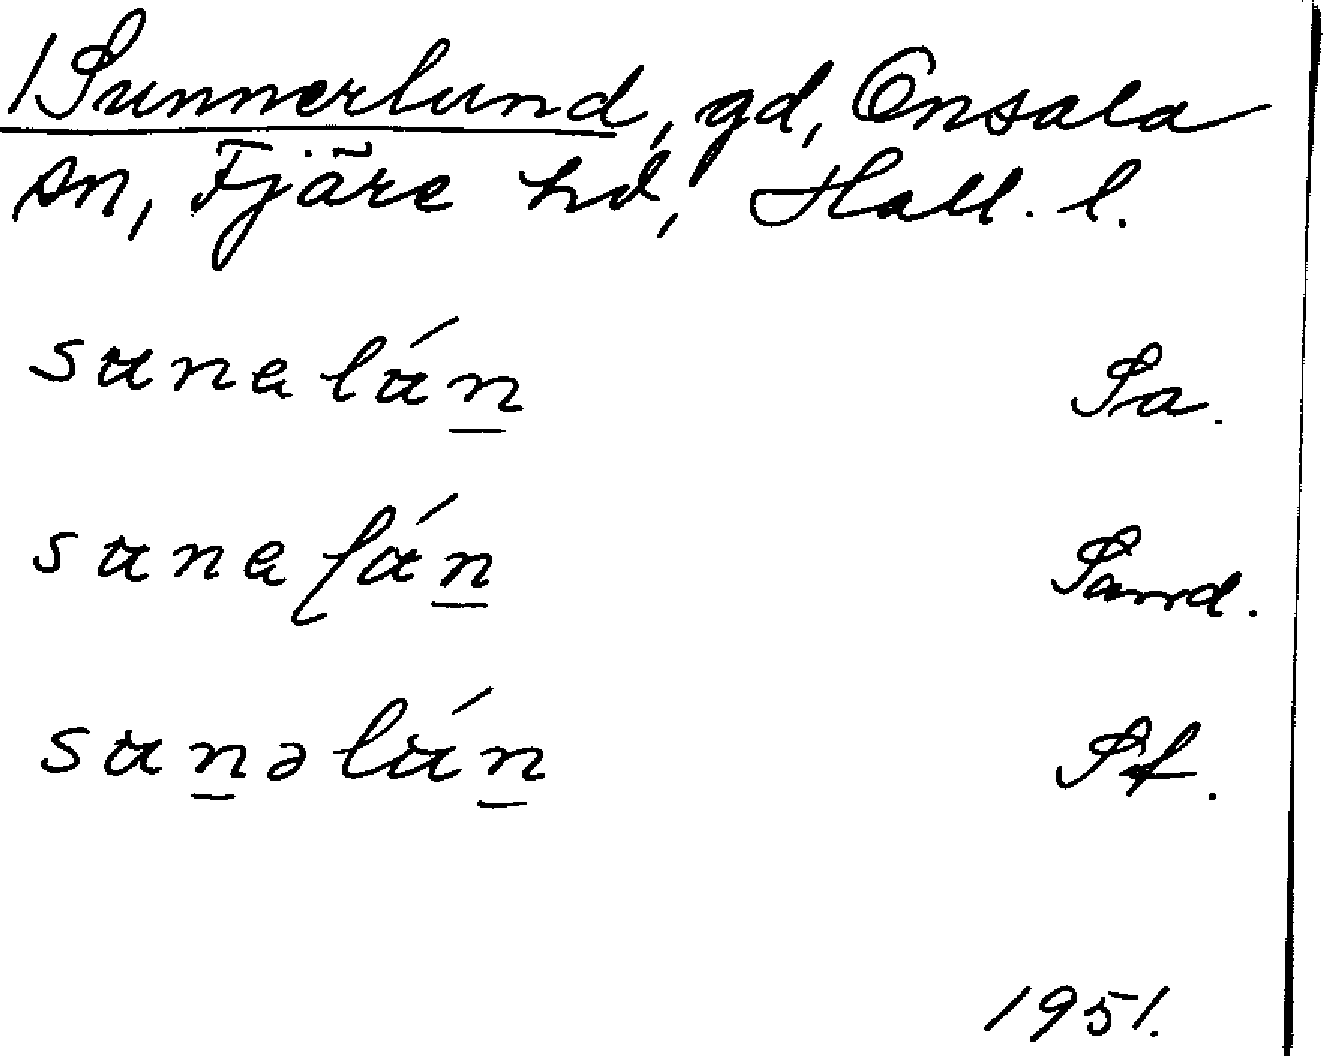 /Sunnerlund, gd, Onsala
sn, Fjäre hd, Hall. l.
sunalún̲ Sa.
sunaɭún̲ Sand.
sun̲əlún̲ Sf.
1951.